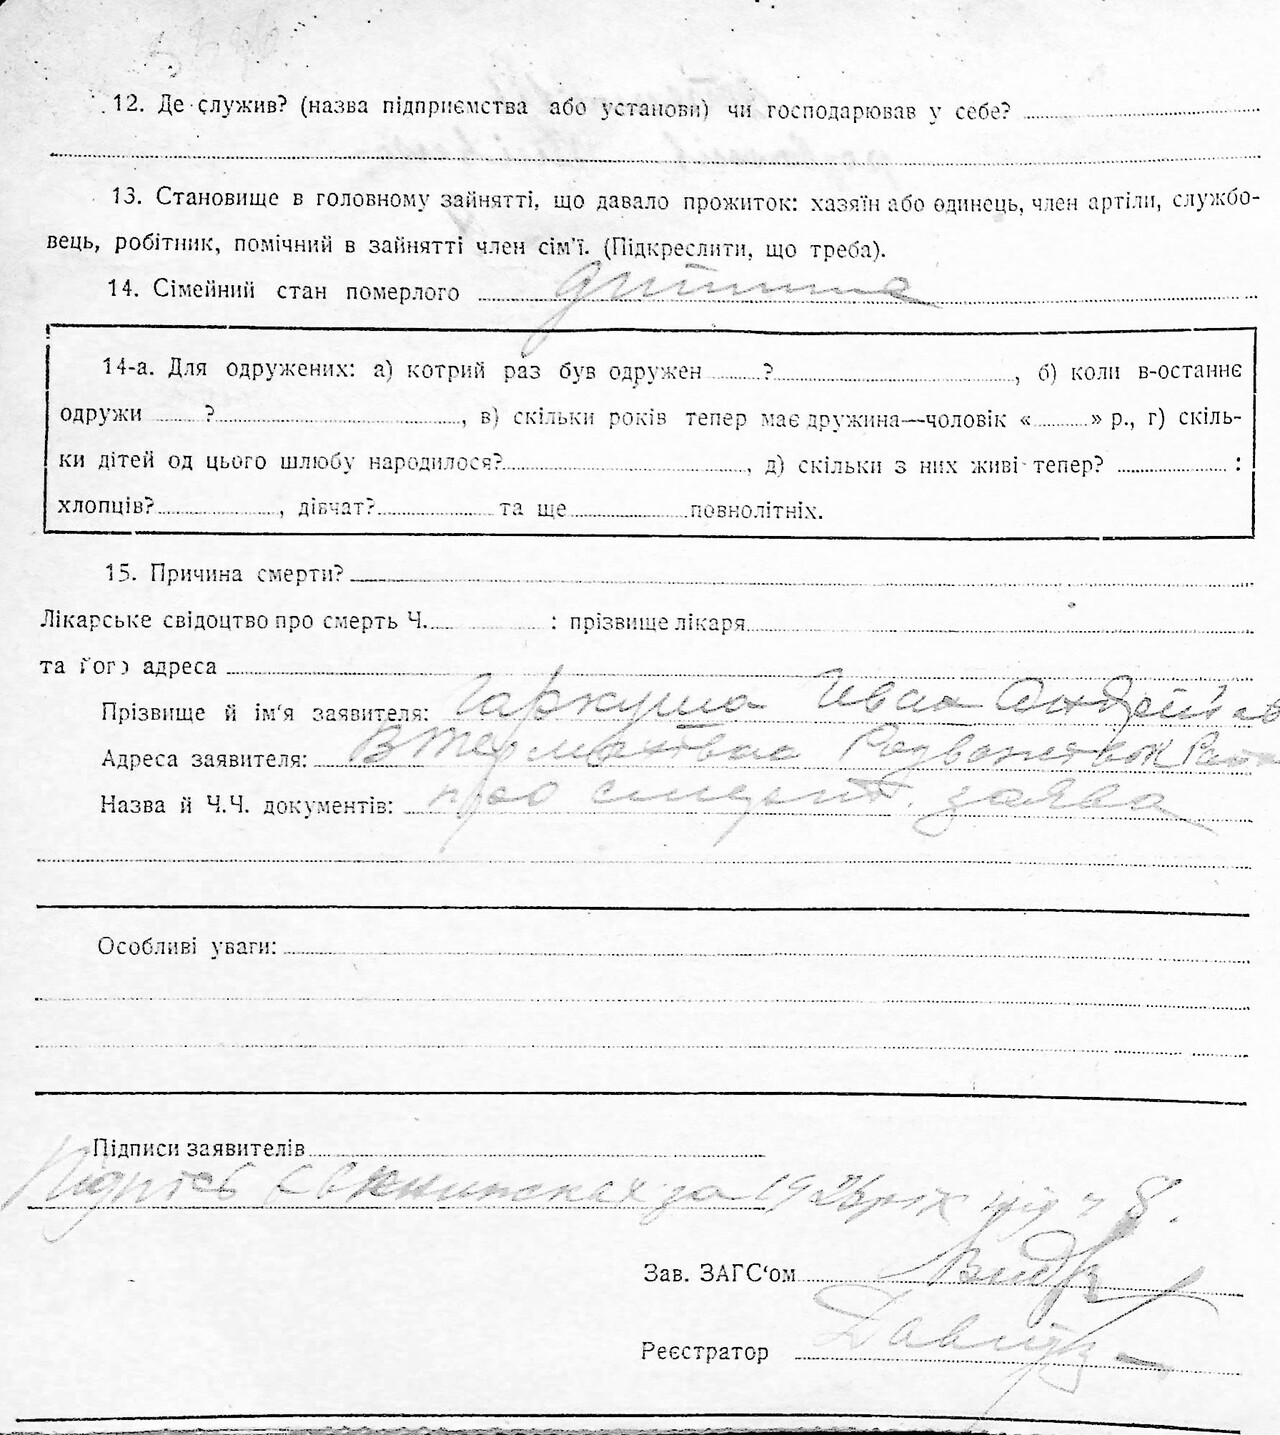 12. Де служив? (назва підприємства або установи) чи господарював у себе?
13. Становище в головному зайнятті, що давало прожиток: хазяїн або одинець, член артіли, службо-
вець, робітник, помічний в зайнятті член сім'ї. (Підкреслити, що треба).
14. Сімейний стан померлого дитина
14-а. Для одружених: а) котрий раз був одружен ? , б) коли в-останнє
одружи ? , в) скільки років тепер має дружина—чоловік « » р., г) скіль-
ки дітей од цього шлюбу народилося? , д) скільки з них живі тепер? :
хлопців? , дівчат? та ще повнолітніх.
15. Причина смерти?
Лікарське свідоцтво про смерть Ч. : прізвище лікаря
та його адреса
Прізвище й ім'я заявителя: Гаркуша Иван Андрейов
Адреса заявителя:
Назва й Ч.Ч. документів: про смерть заява
Особливі уваги:
Підписи заявителів
Підпись в книжках за 192 рік під ч 8.
Зав. ЗАГС'ом
Реєстратор